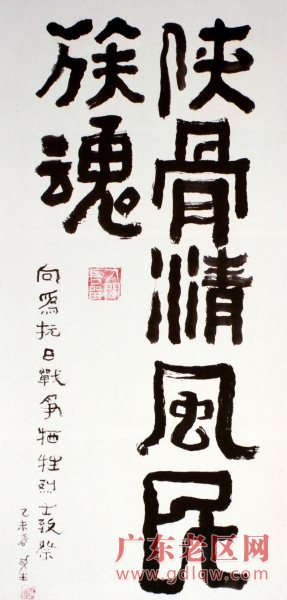 侠骨清風民
族魂
向為抗日戰爭牺牲烈士致祭
乙未春
广东老区网
www.gdlqw.com